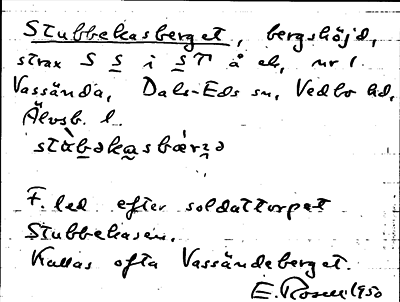 Stubbekasberget, bergshöjd,
strax S S i ST å ek, nr 1
Vassända, Dals-Eds sn, Vedbo hd,
Älvsb. l.
stùb̠əka̠sbærʒə
F. led efter soldattorpet
Stubbekasen.
Kallas ofta Vassändeberget.
E. Rosell 1950